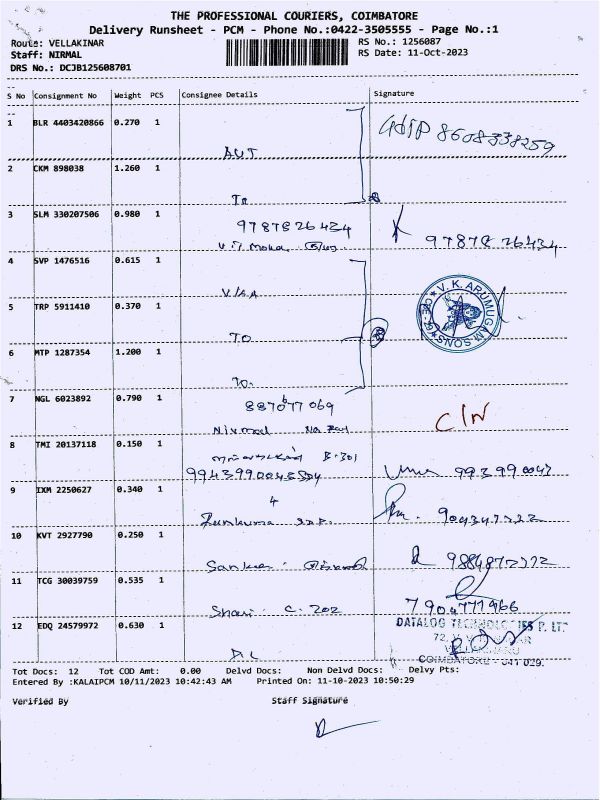 THE PROFESSIONAL COURIERS, COIMBATORE
Delivery Runsheet - PCM - Phone No.:0422-3505555 - Page No.:1
Route: VELLAKINAR
RS No.: 1256087
Staff: NIRMAL
RS Date: 11-Oct-2023
DRS No.: DCJB125608701
S No Consignment No Weight PCS Consignee Details Signature
1 BLR 4403420866 0.270 1
8608338259
AUT
2 CKM 898038 1.260 1
To
3 SLM 330207506 0.980 1
9787826434
9787826434
V.T Mona
4 SVP 1476516 0.615 1
V.K.ARUMUGAM SONS
5 TRP 5911410 0.370 1
TO
6 MTP 1287354 1.200 1
To.
7 NGL 6023892 0.790 1
C/N
Nirmal
8 TMI 20137118 0.150 1
B-301
Uma
9 IXM 2250627 0.340 1
10 KVT 2927790 0.250 1
Sankar
11 TCG 30039759 0.535 1
7904771466
C. 202
12 EDQ 24579972 0.630 1
DATALOG TECHNOLOGIES P. LT
COIMBATORE - 641 029.
D.L
Tot Docs: 12 Tot COD Amt: 0.00 Delvd Docs: Non Delvd Docs: Delvy Pts:
Entered By :KALAIPCM 10/11/2023 10:42:43 AM Printed On: 11-10-2023 10:50:29
Verified By Staff Signature